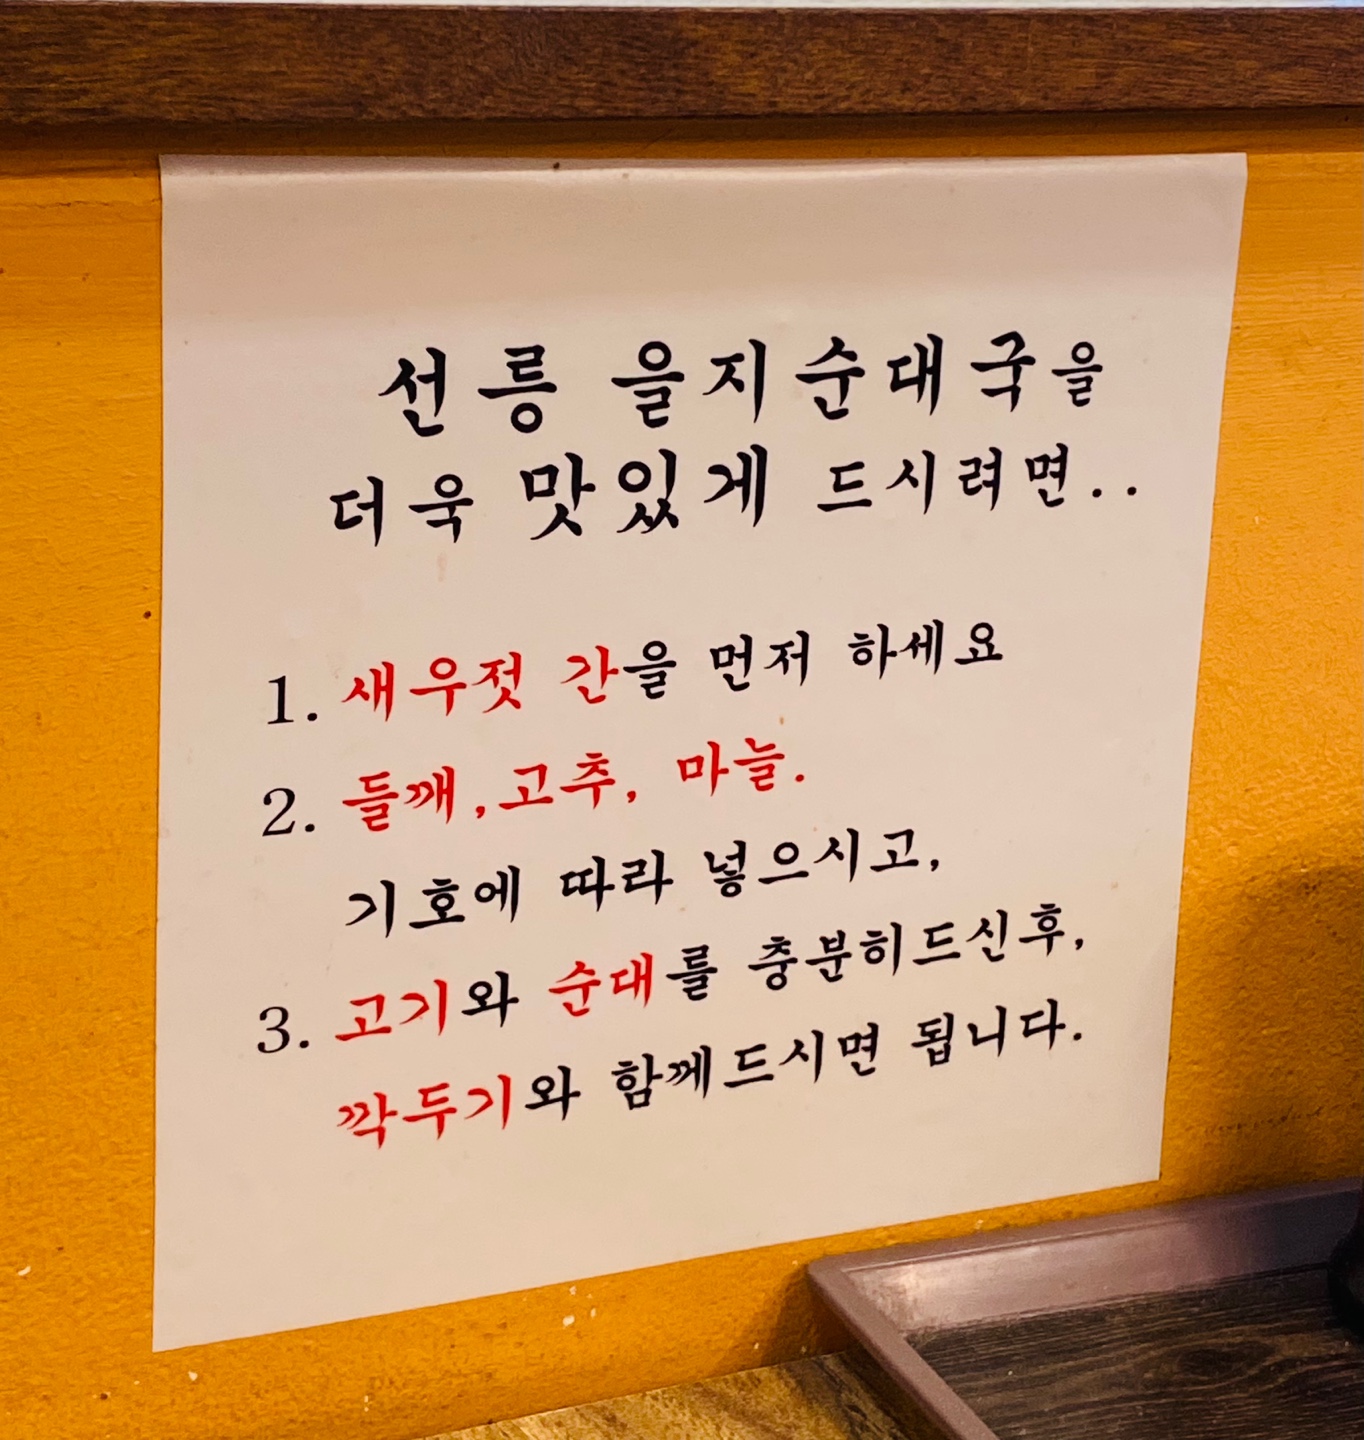 선릉 을지순대국을
더욱 맛있게 드시려면..
1. 새우젓 간을 먼저 하세요
2. 들깨,고추, 마늘.
기호에 따라 넣으시고,
3. 고기와 순대를 충분히드신후,
깍두기와 함께드시면 됩니다.